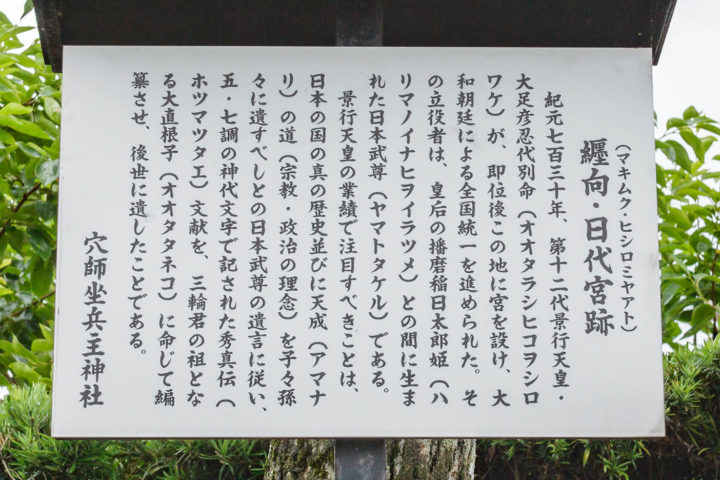 (マキムク・ヒシロミヤアト)
纒向・日代宮跡
紀元七百三十年、第十二代景行天皇・
大足彦忍代別命(オオタラシヒコヲシロ
ワケ)が、即位後この地に宮を設け、大
和朝廷による全国統一を進められた。そ
の立役者は、皇后の播磨稲日太郎姫(ハ
リマノイナヒヲイラツメ)との間に生ま
れた日本武尊(ヤマトタケル)である。
景行天皇の業績で注目すべきことは、
日本の国の真の歴史並びに天成(アマナ
リ)の道(宗教・政治の理念)を子々孫
々に遺すべしとの日本武尊の遺言に従い、
五・七調の神代文字で記された秀真伝(
ホツマツタエ)文献を、三輪君の祖とな
る大直根子(オオタタネコ)に命じて編
纂させ、後世に遺したことである。
穴師坐兵主神社